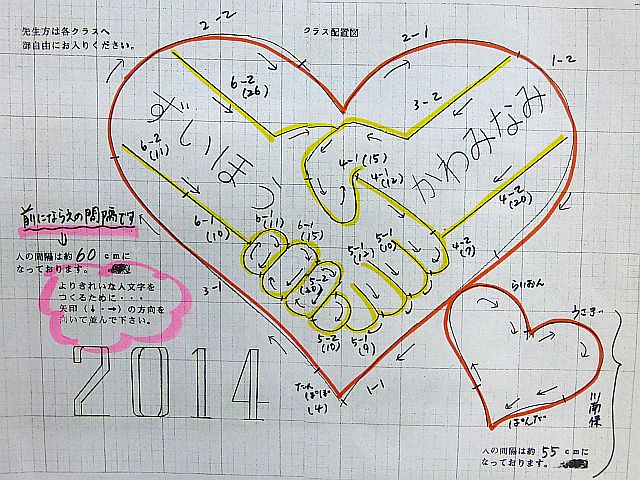 先生方は各クラスへ
御自由にお入りください。
クラス配置図
2-2
2-1
1-2
6-2
(26)
3-2
ざいほう
かわみなみ
6-2
(11)
4-1
(15)
4-1
(12)
4-2
(20)
前にならえの間隔です
人の間隔は約 60 cmに
なっております。
6-1
(10)
6-1
(11)
6-1
(15)
5-1
(12)
5-1
(10)
4-2
(7)
5-2
(10)
5-2
(10)
5-1
(9)
よりきれいな人文字を
つくるために・・・
矢印(↓・→)の方向を
向いて並んで下さい。
3-1
2014
たん
ぽぽ
(4)
1-1
らいおん
うさぎ
ぱんだ
川南保
人の間隔は約 55 cmに
なっております。